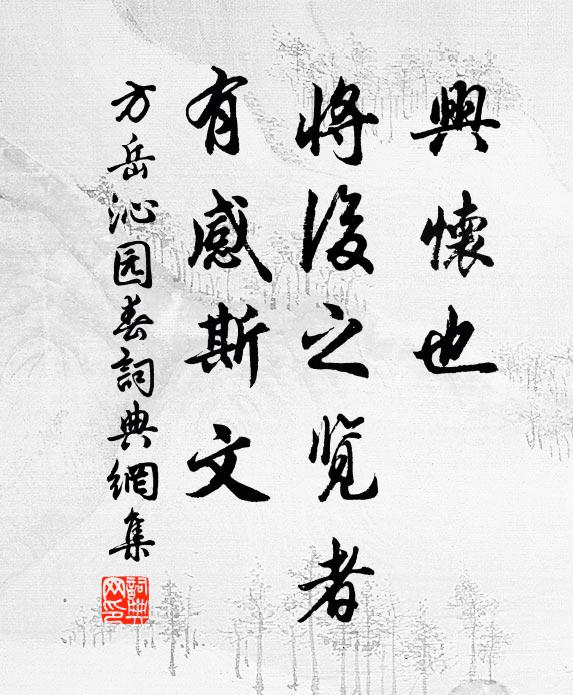 興懷也
將後之覽者
有感斯文
方岳沁园春詞典網集
詞典网印